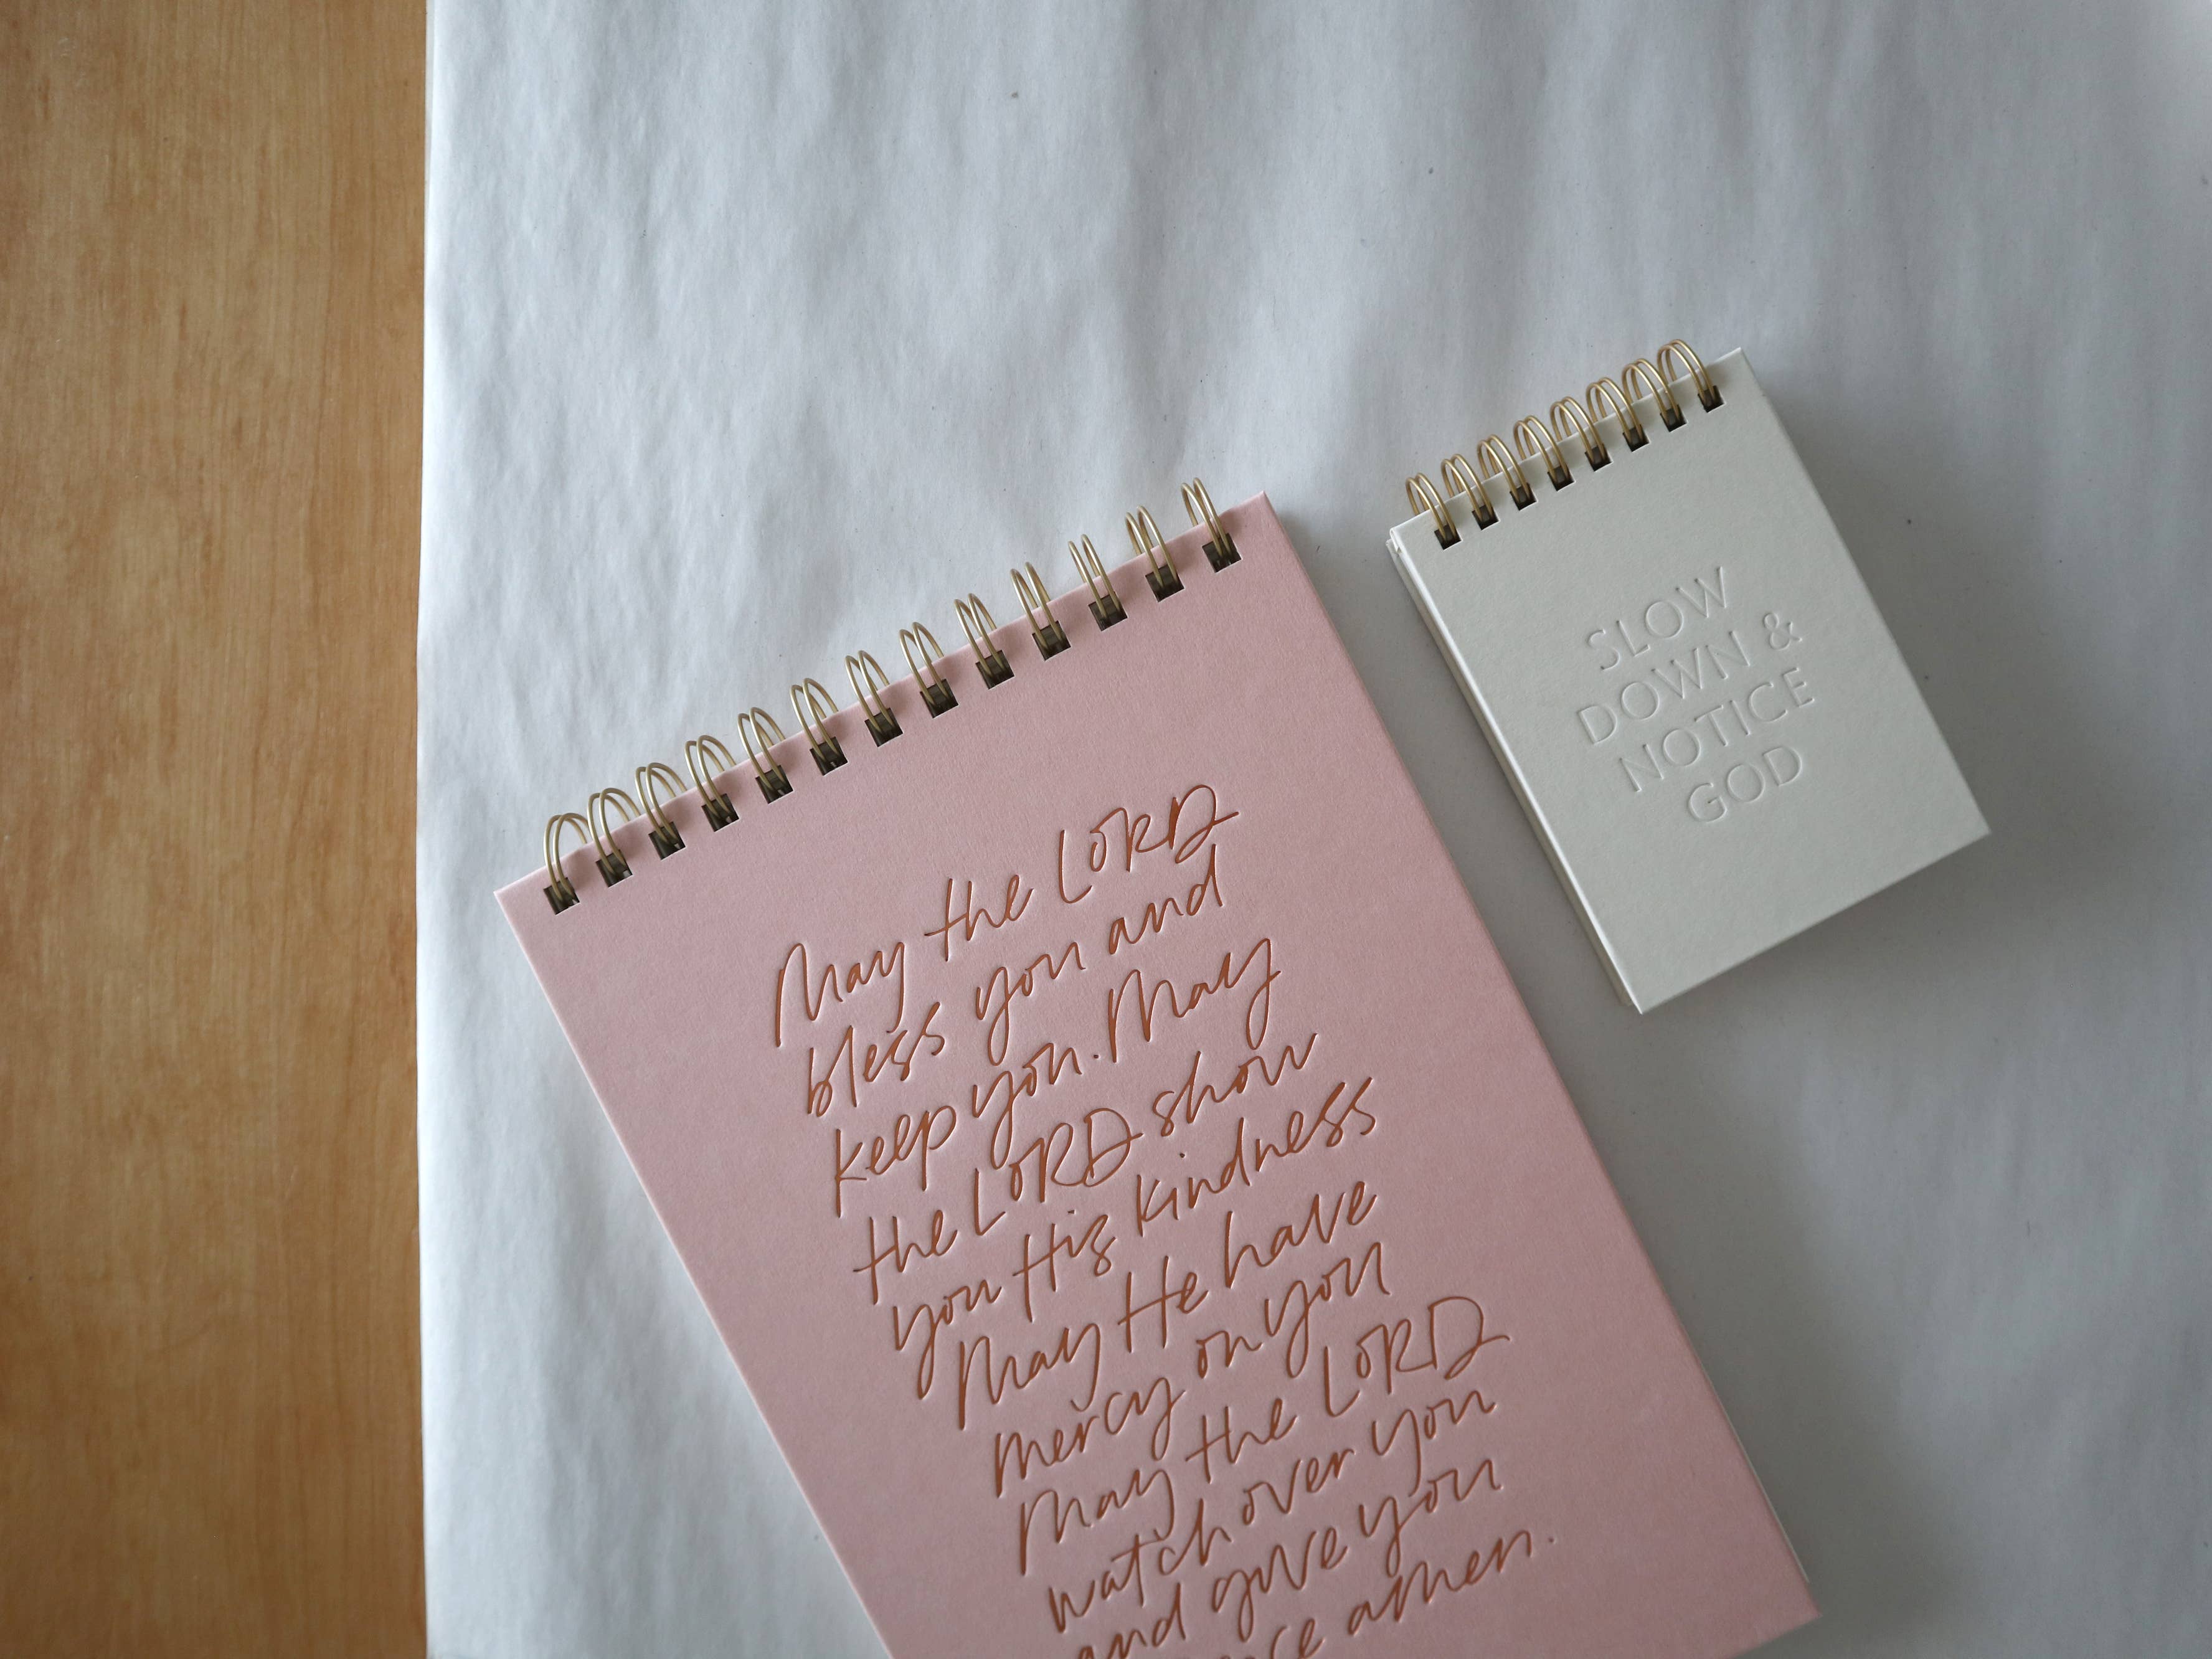 May the LORD
bless you and
keep you. May
the LORD show
you His kindness
May He have
mercy on you
May the LORD
watch over you
and give you
amen.
SLOW
DOWN &
NOTICE
GOD